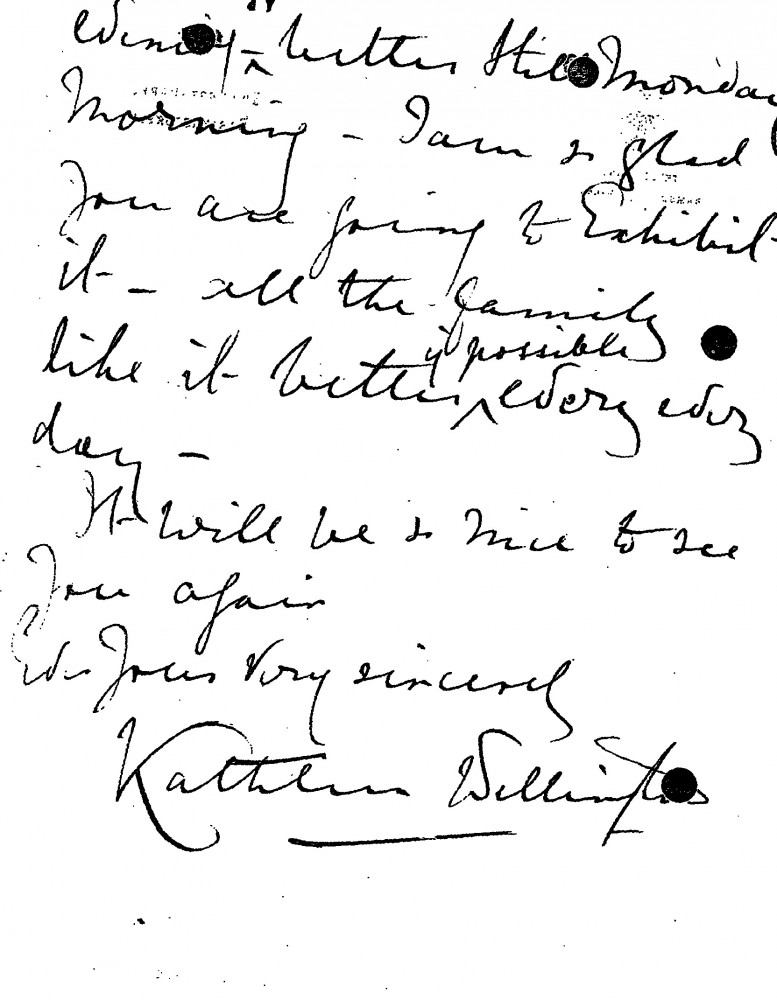 evening - better still Monday
Morning - I am so glad
you are going to Exhibit
it - all the family
like it better ^ if possible every every
day -
It will be so nice to see
you again
Ever Yours Very sincerely
Kathleen Wellington